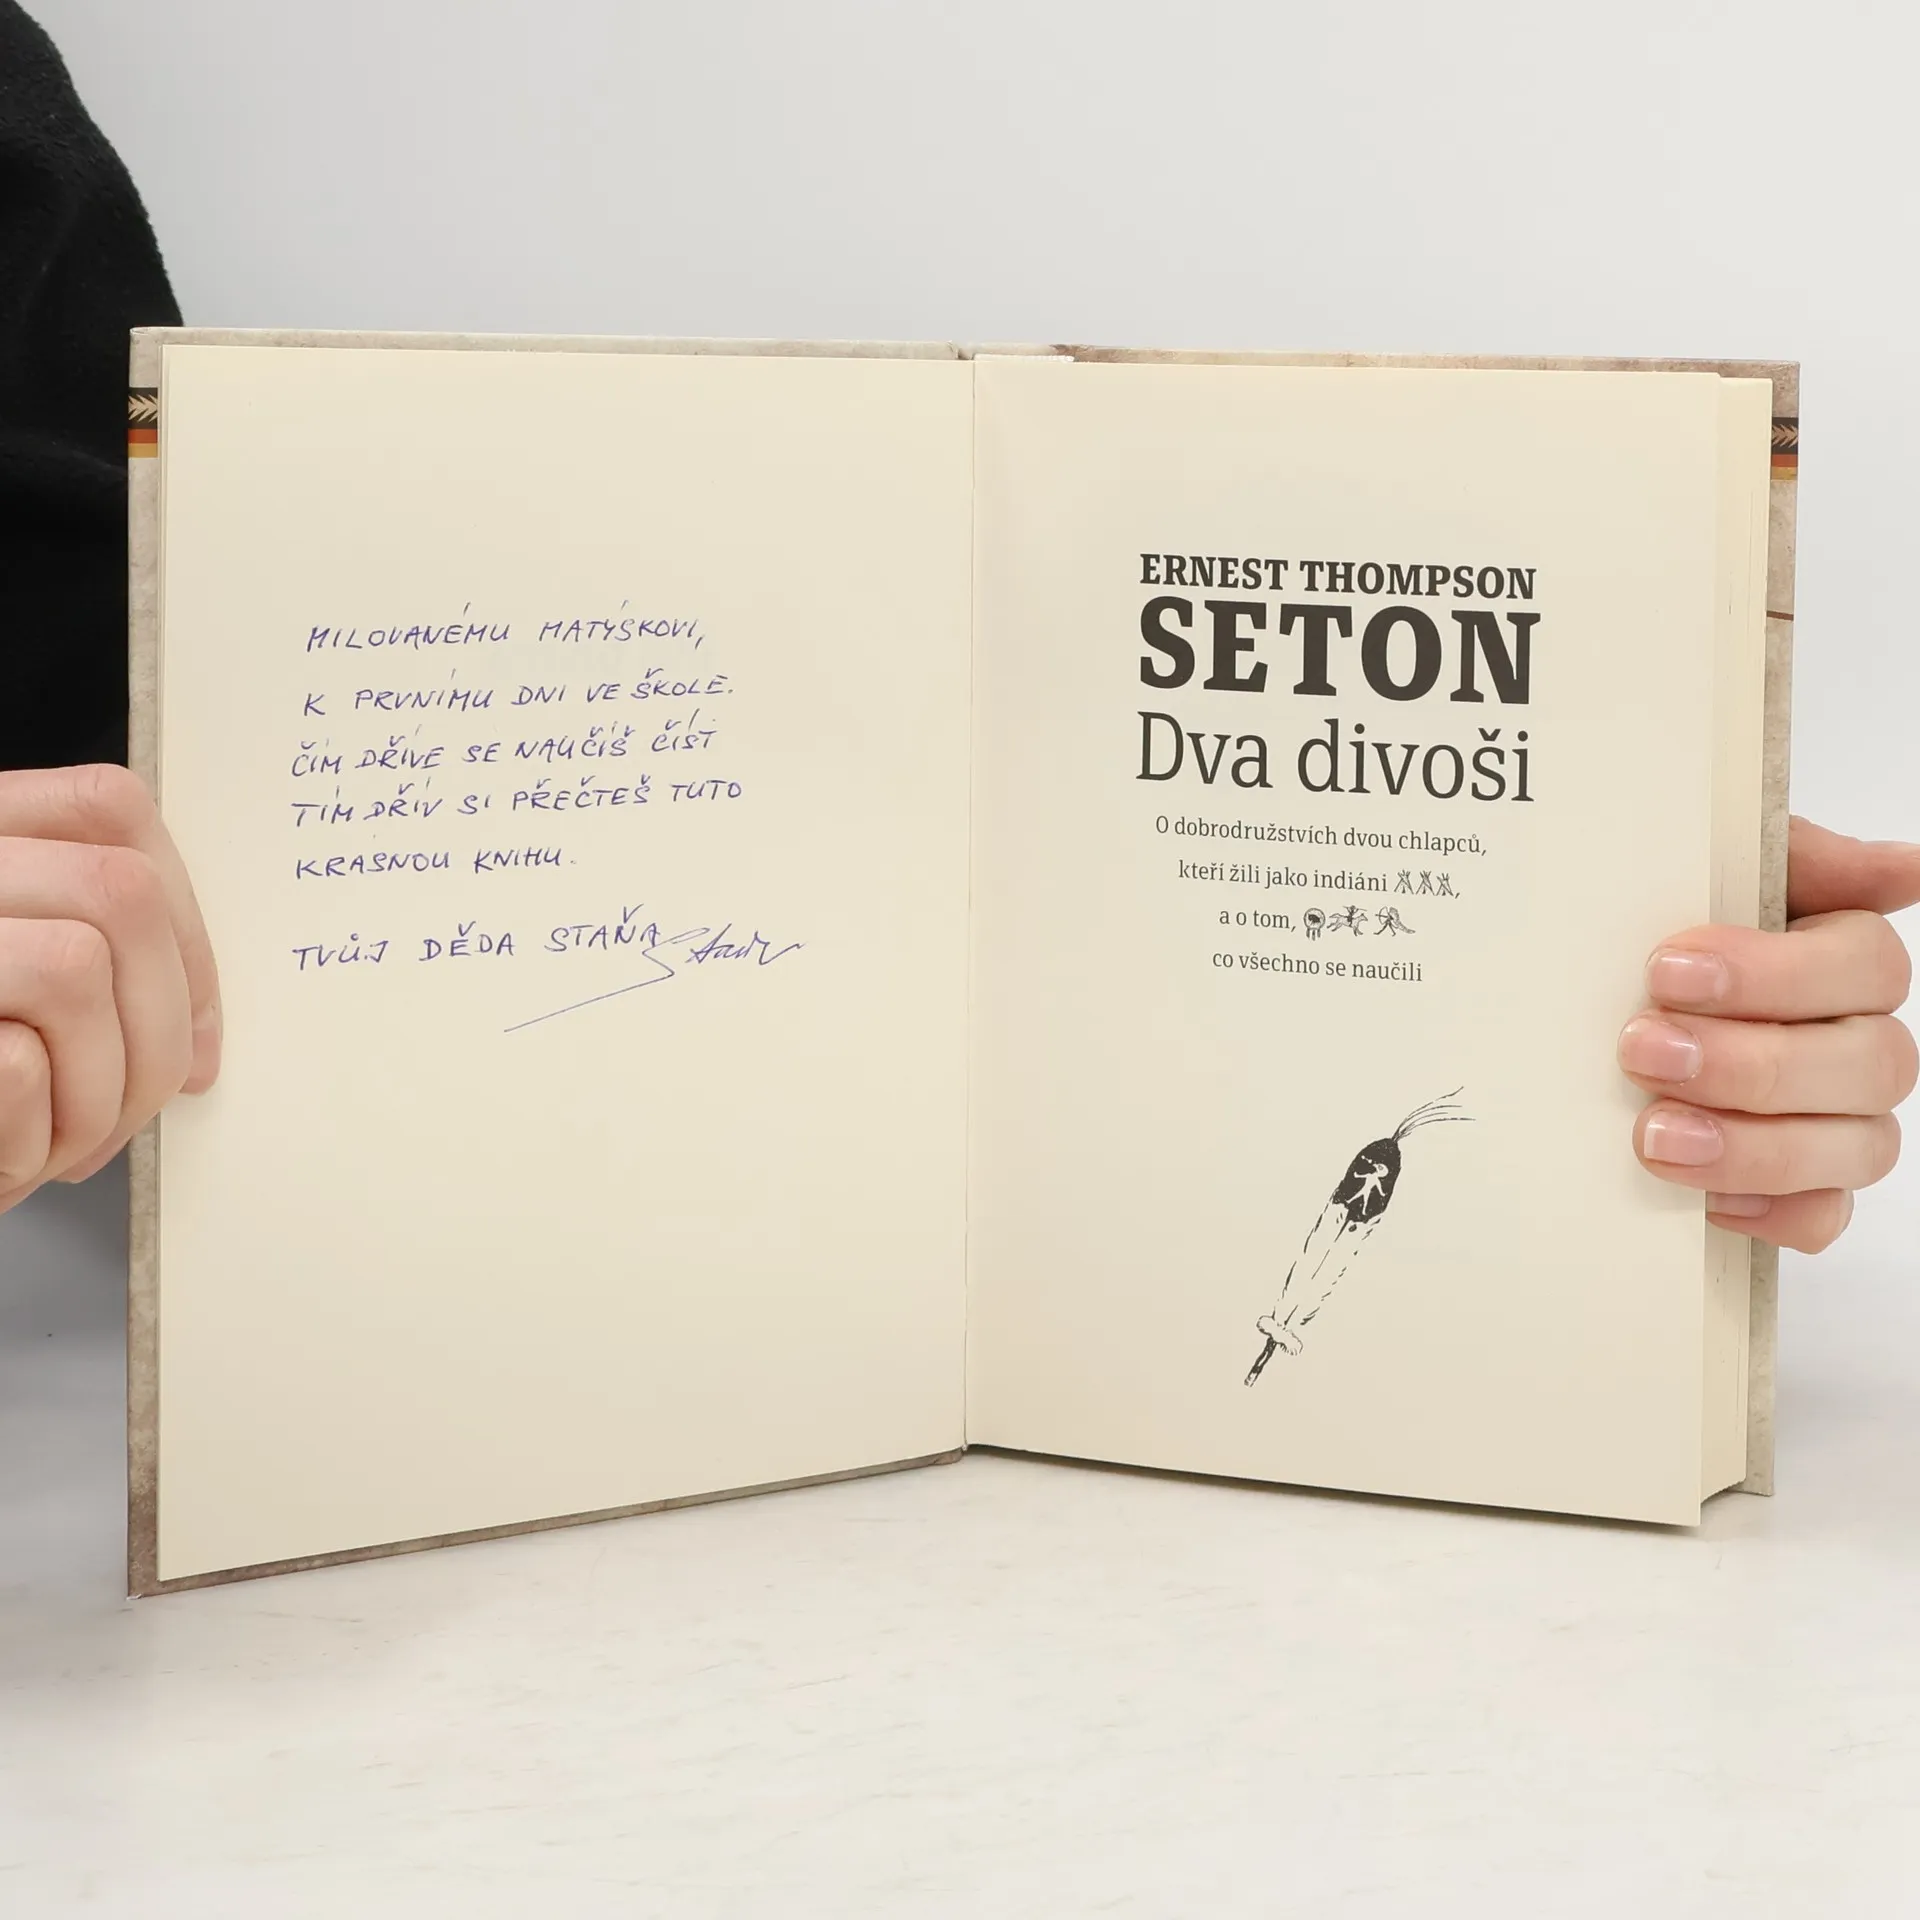 MILOVANÉMU MATÝSKOVI,
K PRVNÍMU DNI VE ŠKOLE.
ČÍM DŘÍVE SE NAUČÍŠ ČÍST
TÍM DŘÍV SI PŘEČTEŠ TUTO
KRÁSNOU KNIHU.
TVŮJ DĚDA STAŇA
ERNEST THOMPSON
SETON
Dva divoši
O dobrodružstvích dvou chlapců,
kteří žili jako indiáni ,
a o tom,
co všechno se naučili